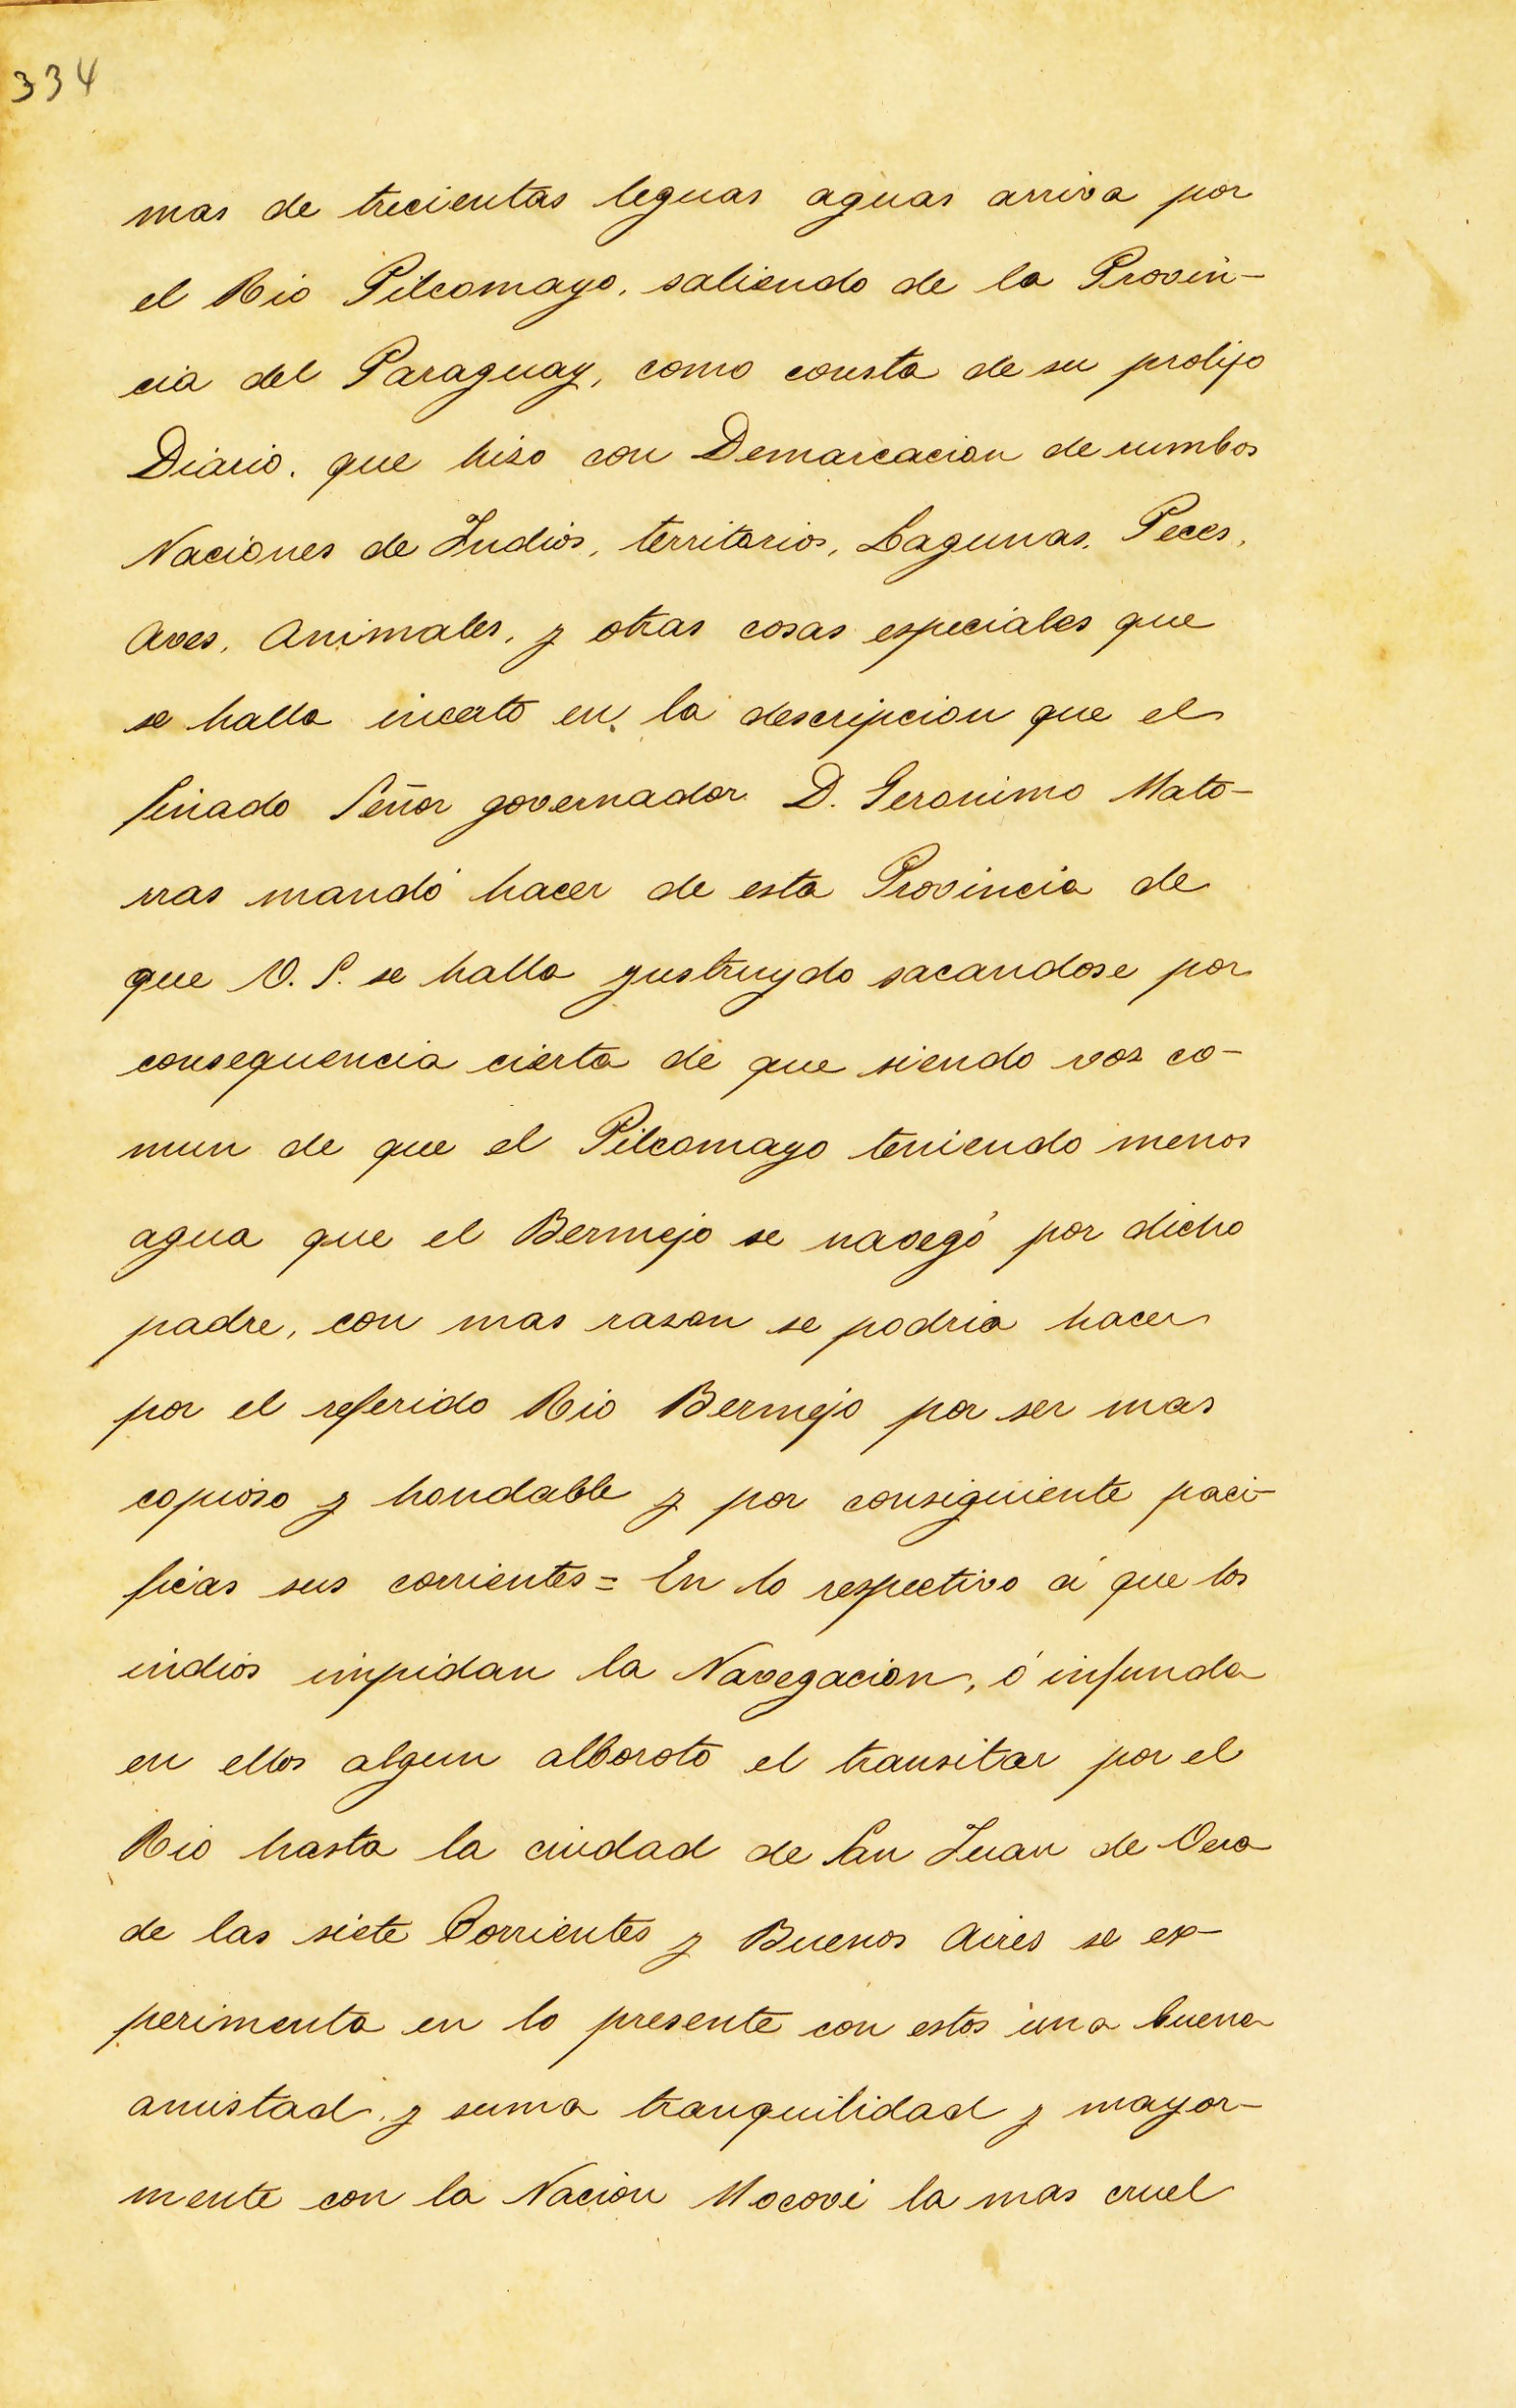 334
mas de trecientas leguas aguas arriva por
el Rio Pilcomayo, saliendo de la Provin-
cia del Paraguay, como consta de su prolijo
Diario. que hiso con Demarcacion de rumbos
Naciones de Indios, territorios, Lagunas, Peces,
Aves, Animales, y otras cosas especiales que
se halla incerto en la descripcion que el
finado Señor governador D. Geronimo Mato-
rras mandó hacer de esta Provincia de
que V. S. se halla ynstruydo sacandose por
consequencia cierta de que siendo vos co-
mun de que el Pilcomayo teniendo menos
agua que el Bermejo se navegó por dicho
padre, con mas razon se podria hacer
por el referido Rio Bermejo por ser mas
copioso y hondable y por consiguiente paci-
ficas sus corrientes = En lo respectivo á que los
indios impidan la Navegacion, ó infunda
en ellos algun alboroto el transitar por el
Rio hasta la ciudad de San Juan de Vera
de las siete Corrientes y Buenos Aires se ex-
perimenta en lo presente con estos una buena
amistad, y suma tranquilidad y mayor-
mente con la Nacion Mocovi la mas cruel